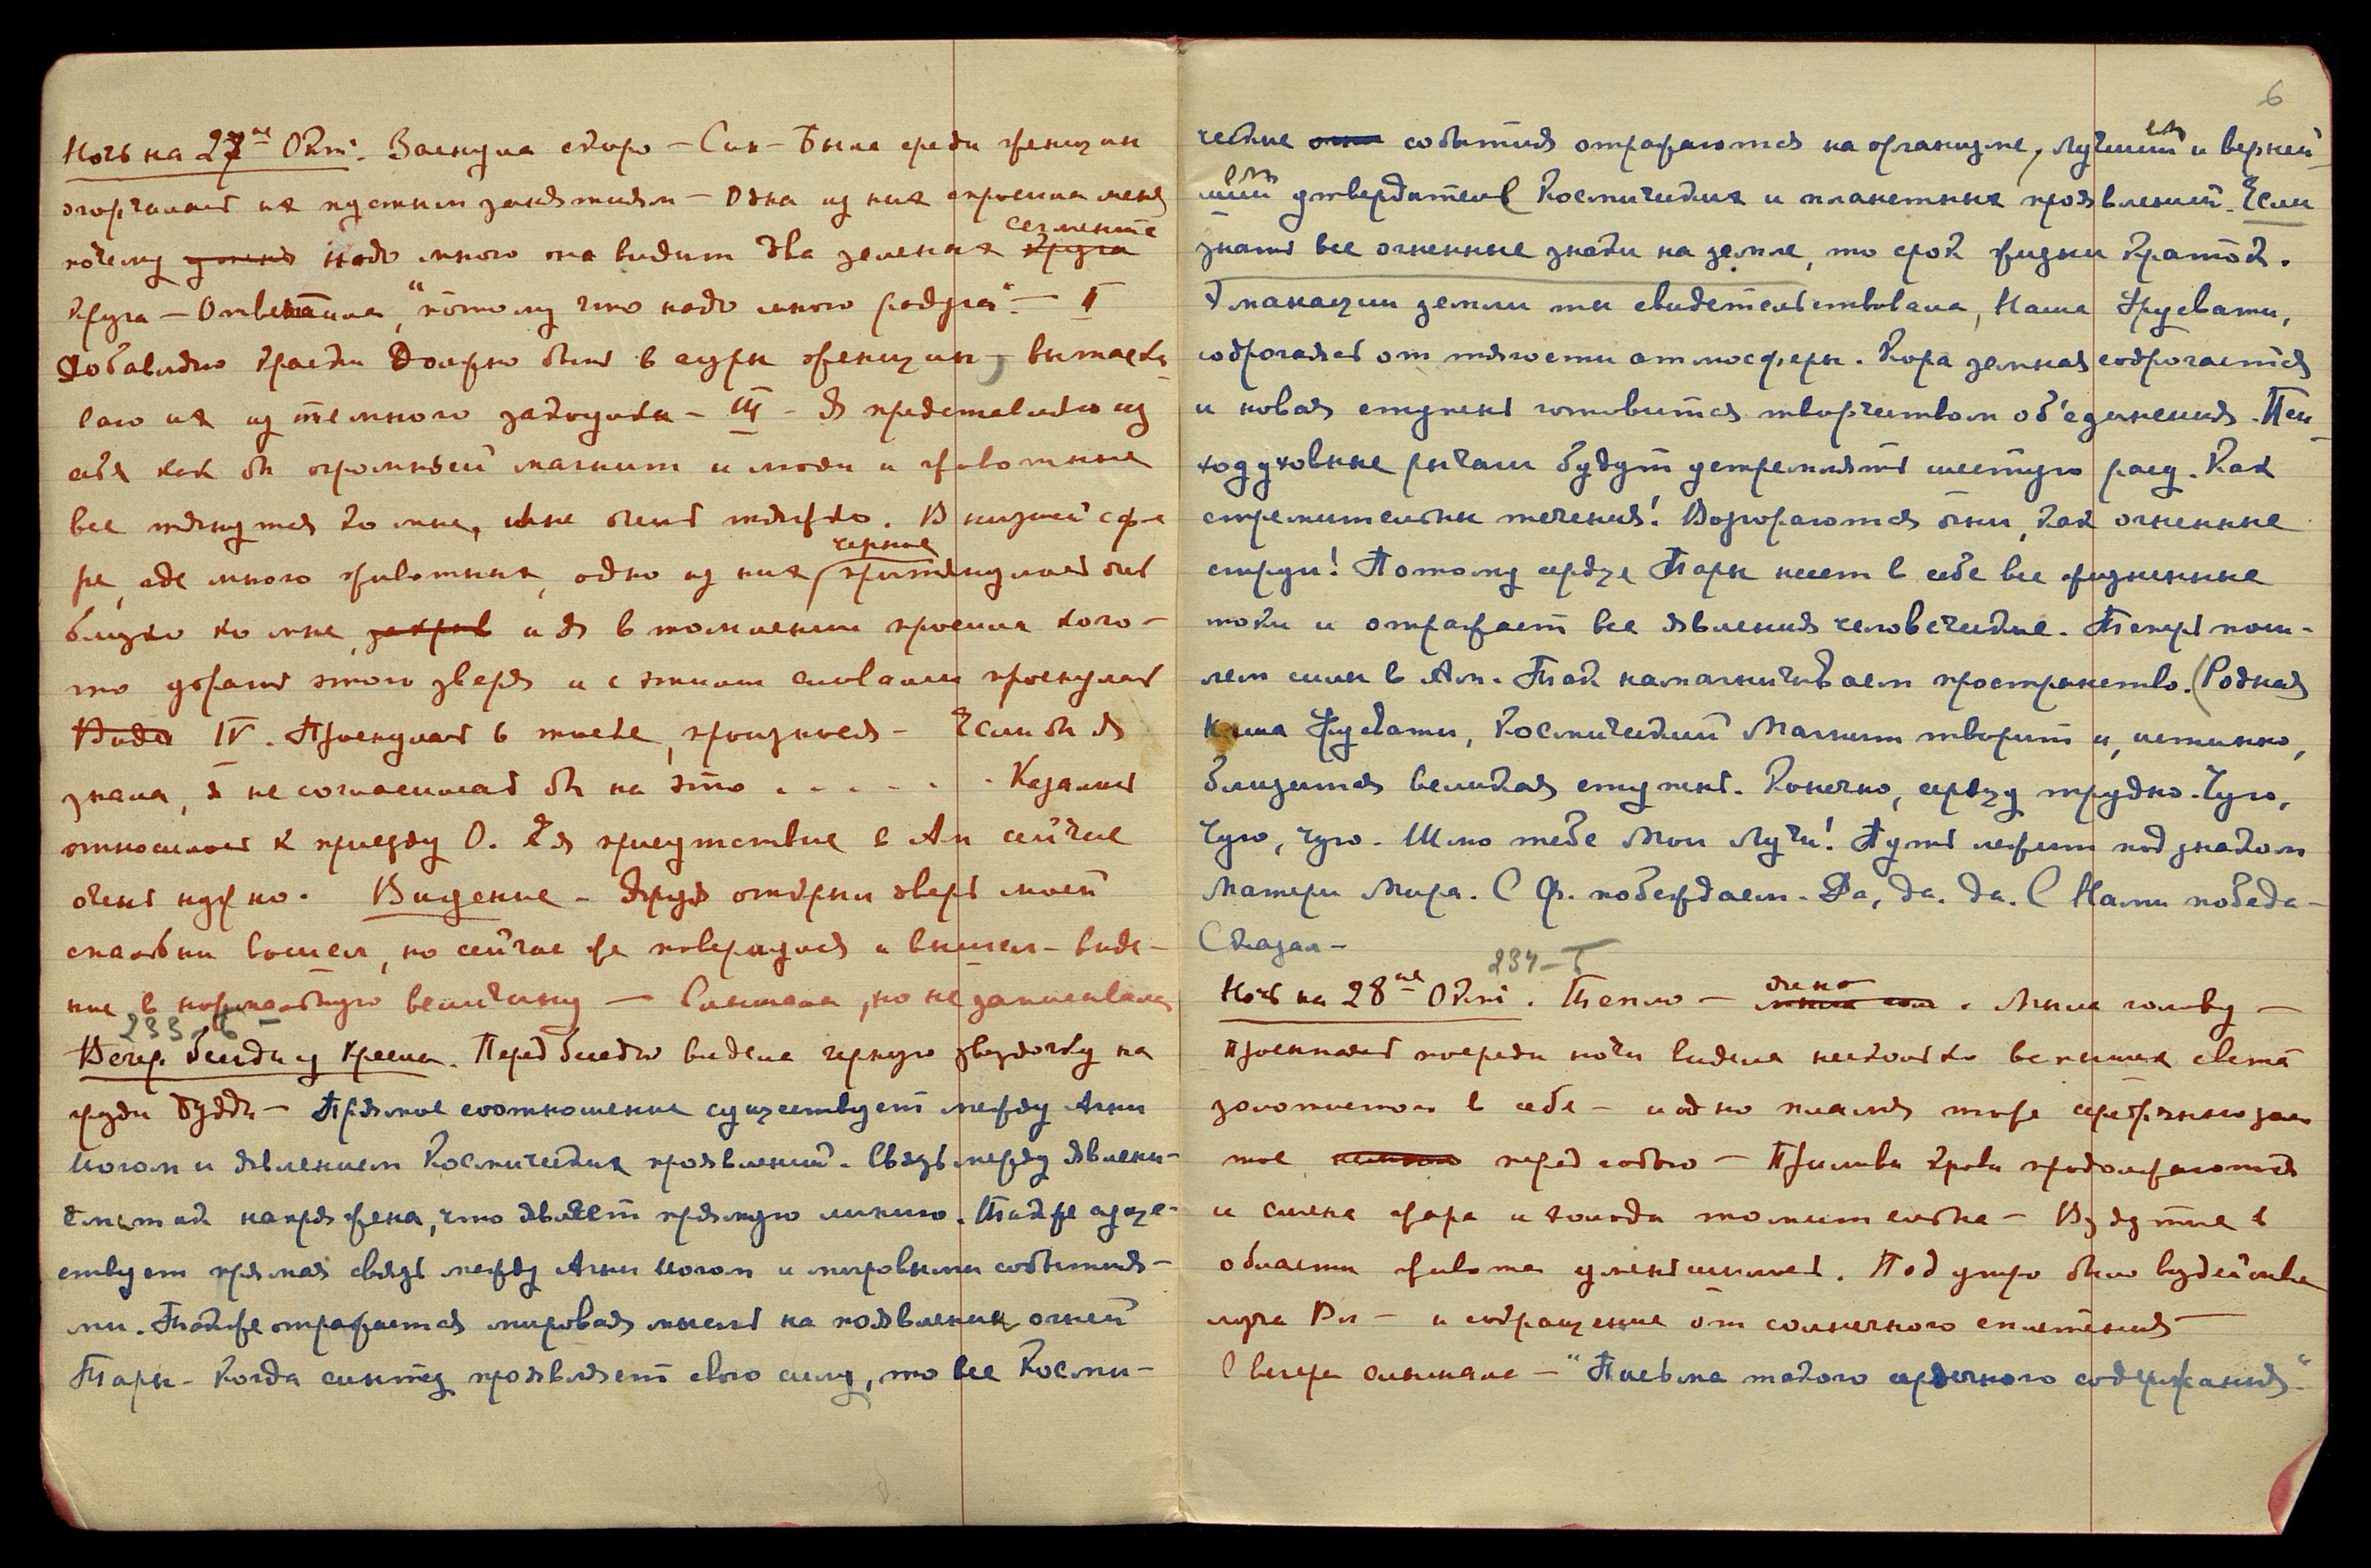 Ночь на 27ое Окт. Заснула скоро – Сны – Была среди женщин
огорчалась их пустым занятиям – Одна из них спросила меня
почему надо мною она видит два зеленых сегмента
круга – Ответила, "потому что надо мною радуга" – II
Добавляю краски должно быть в ауры женщин, вытаски
ваю их из темного закоулка – III – Я представляю из
себя как бы огромный магнит и люди и животные
все тянутся ко мне, мне очень тяжко. В низшей сфе
ре, где много животных, одно из них черное притянулось оч.
близко ко мне, и я в томлении просила кого-
то убрать этого зверя и с этими словами проснулась
Видя IV. Проснулась в тоске, произнося – Если бы я
знала, я не согласилась бы на это . . . . . . Казалось
относилось к приезду О. Её присутствие в Ам сейчас
очень нужно. Видение – Друг открыл дверь моей
спальни вошел, но сейчас же повернулся и вышел – виде-
ние в нормальную величину – Слышала, но не записывала
233-б
Вечер. беседы у кресла. Перед беседою видела черную звездочку на
груди Будды – Прямое соотношение существует между Агни
Йогом и явлением Космических проявлений. Связь между явлени-
ем так напряжена, что являет прямую линию. Также суще-
ствует прямая связь между Агни Йогом и мировыми событиями-
ми. Также отражается мировая мысль на появлении огней
Тары – Когда синтез проявляет свою силу, то все Косми-
6
ческие события отражаются на организме, Лучший есть и верней-
ший есть утвердитель Космических и планетных проявлений. Если
знать все огненные знаки на земле, то срок жизни краток.
Эманации земли ты свидетельствовала, Наша Урусвати,
содрогаясь от тягости атмосферы. Кора земная содрогается
и новая ступень готовится творчеством об'единения. Пси
ходуховные рычаги будут устремлять шестую расу. Как
стремительны течения! Возгораются огни, как огненные
струи! Потому сердце Тары несет в себе все жизненные
токи и отражает все явления человеческие. Теперь пош-
лем силы в Ам. Так намагничиваем пространство. (Родная
Наша Урусвати, Космический Магнит творит и, истинно,
близится великая ступень. Конечно, сердцу трудно. Чую,
чую, чую. Шлю тебе Мои Лучи! Путь лежит под знаком
Матери Мира. С Ф. побеждаем. Да, да, да. С Нами победа –
Сказал –
234-Т
Ночь на 28ое Окт. Тепло – окно. Мыла голову –
Просыпаясь посреди ночи видела несколько вспышек света
золотистого в себе – и одно пламя тоже серебряно золо
тое перед собою – Приливы крови продолжаются
и смена жара и холода томительна – Вздутие в
области живота уменьшилось. Под утро было воздействие
луча Вл – и сокращение от солнечного сплетения –
С вечера слышала – "Письма такого сердечного содержания".